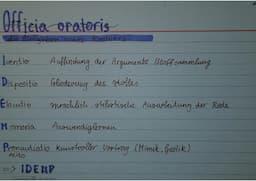 Officia oratoris
die Aufgaben eines Redners
Inventio Auffindung der Argumente, Stoffsammlung
Dispositio Gliederung des Stoffes
Elocutio sprachlich stilistische Ausarbeitung der Rede
Memoria Auswendiglernen
Pronuntiatio kunstvoller Vortrag (Mimik, Gestik)
=> IDEMP